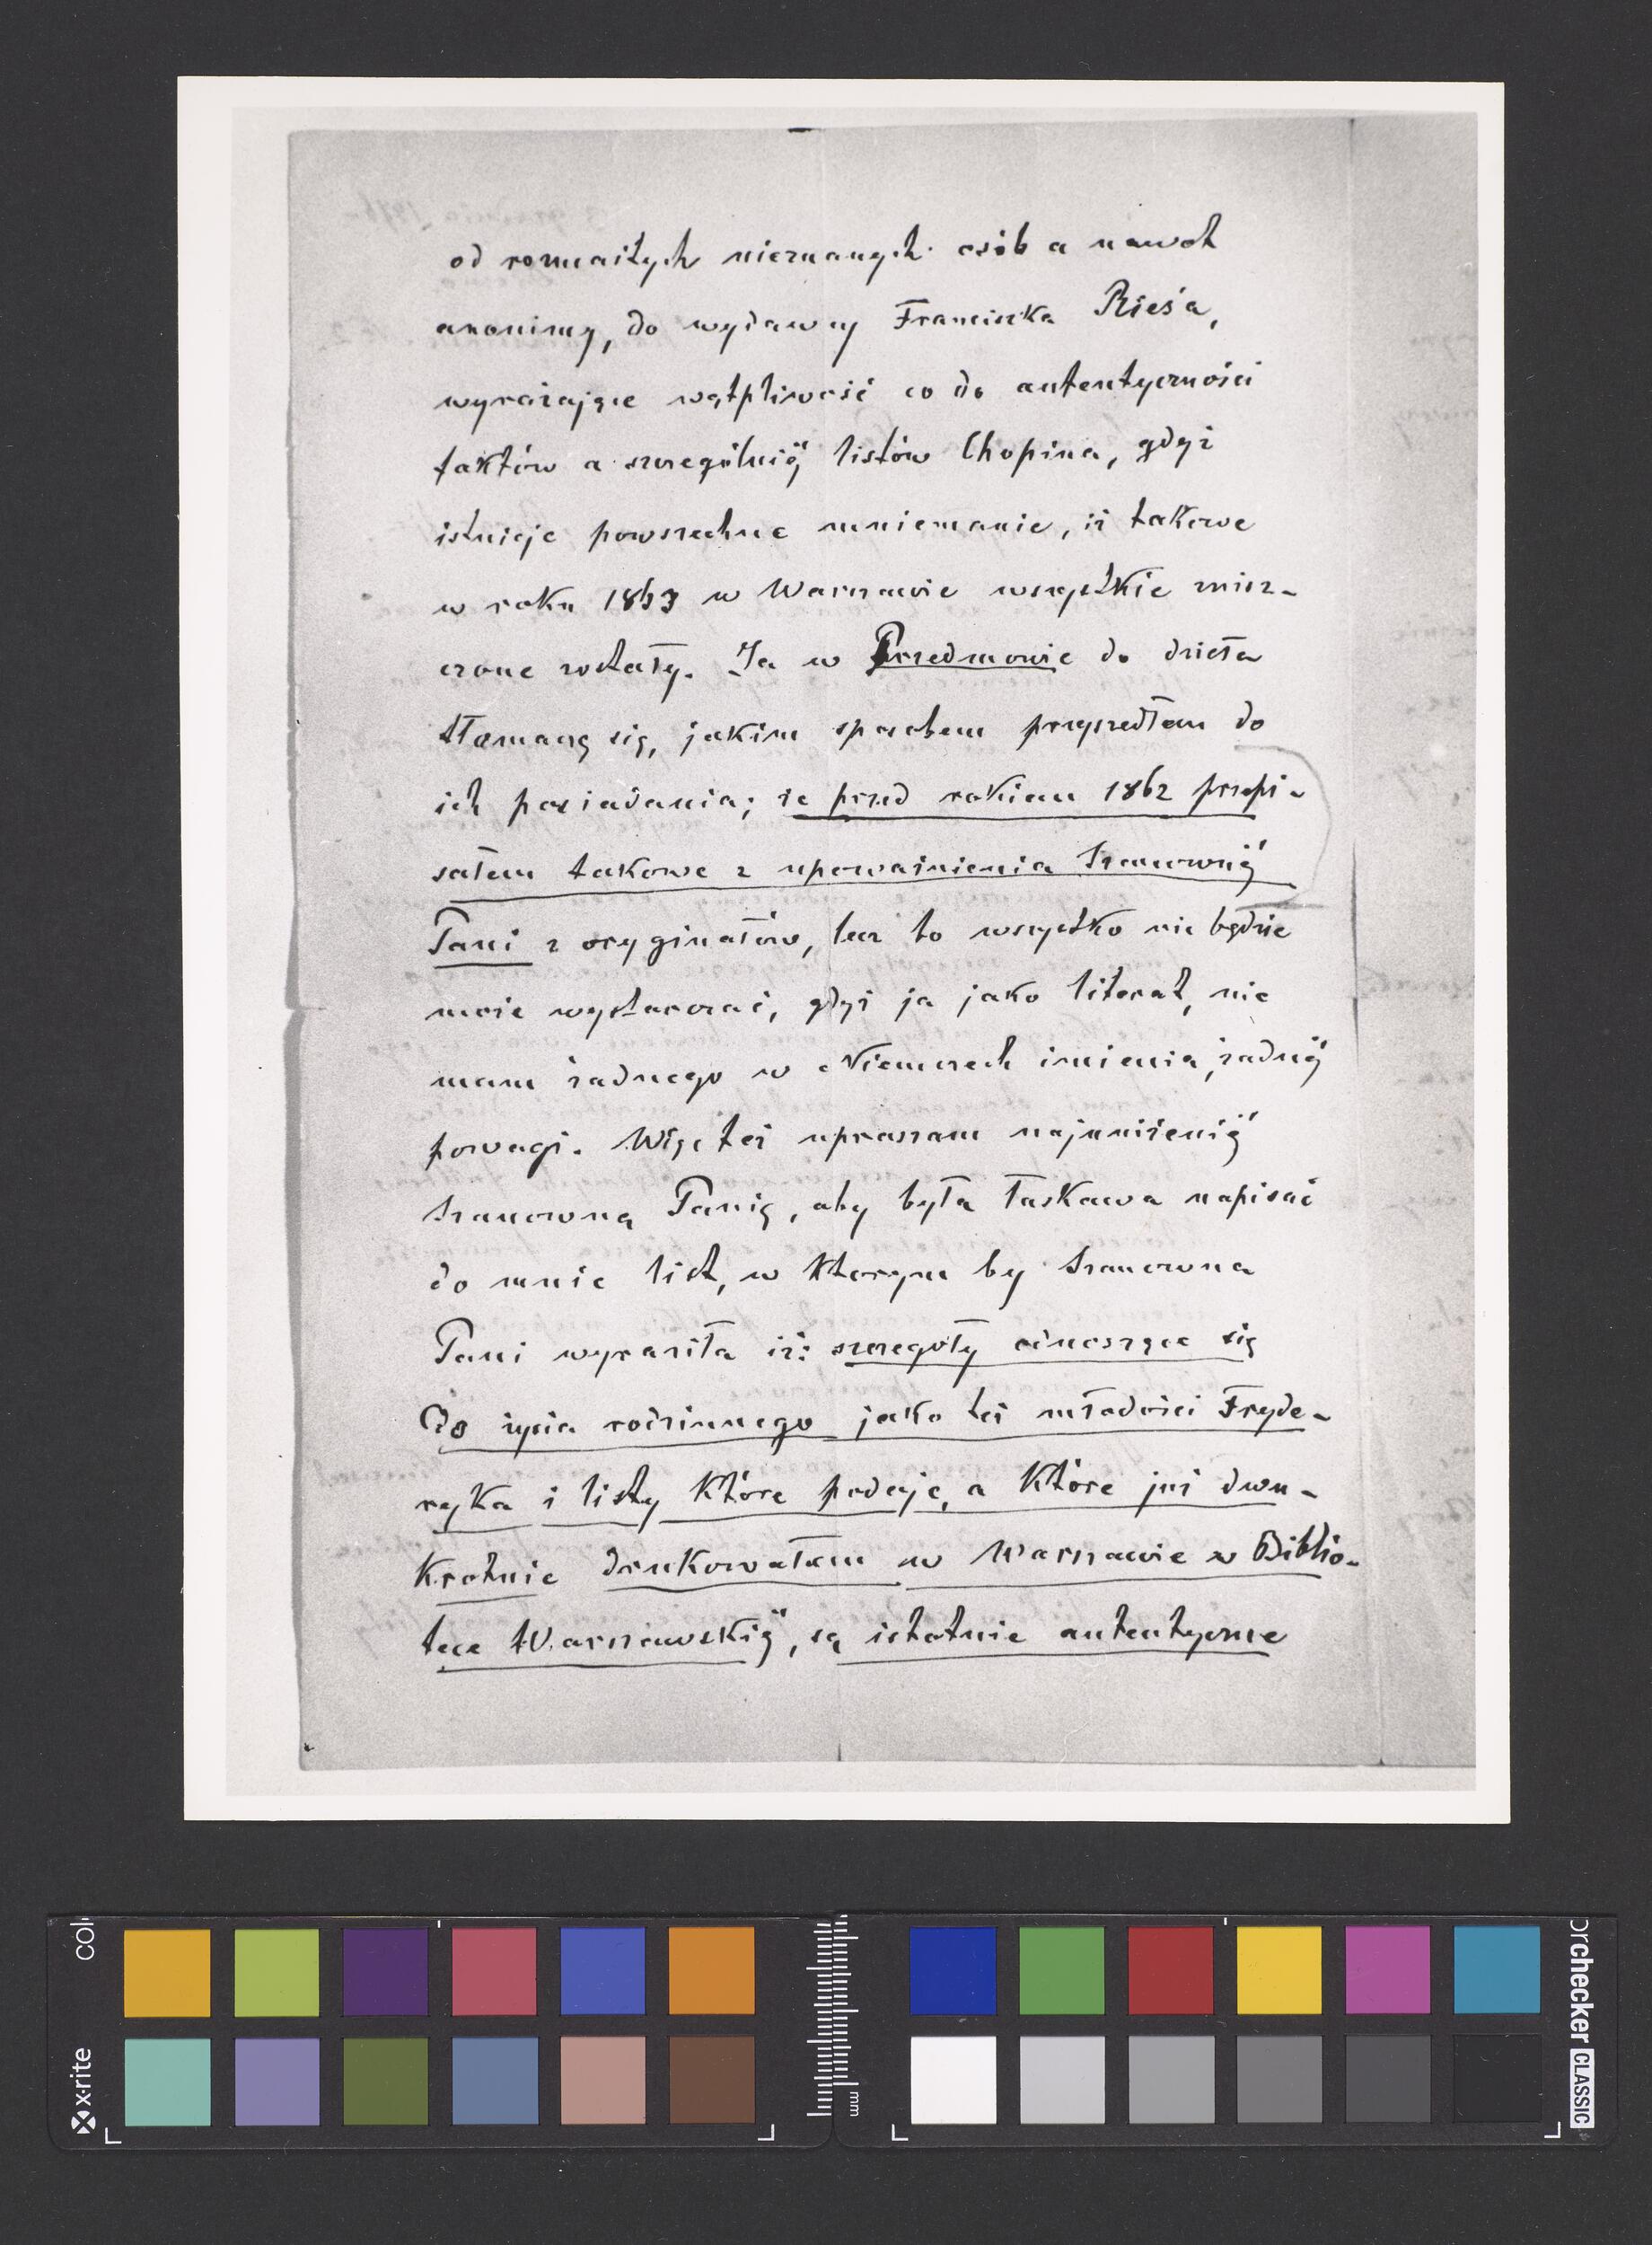 od rozmaitych nieznanych osób a nawet
anonimy, do wydawcy Franciszka Ries'a,
wyrażające wątpliwość co do autentyczności
faktów a szczególniéj listów Chopina, gdyż
istnieje powszechne mniemanie, iż takowe
w roku 1863 w Warszawie wszystkie znisz-
czone zostały. Ja w Przedmowie do dzieła
tłomaczę się, jakim sposobem przyszedłem do
ich posiadania; że przed rokiem 1862 przepi-
sałem takowe z upoważnienia Szanownéj
Pani z oryginałów, lecz to wszystko nie będzie
może wystarczać, gdyż ja jako literat, nie
mam żadnego w Niemczech imienia, żadnéj
powagi. Więc też upraszam najuniżeniéj
Szanowną Panią, aby była łaskawa napisać
do mnie list, w którym by Szanowna
Pani wyraziła iż: szczegóły odnoszące się
do życia rodzinnego jako też młodości Fryde-
ryka i listy które podaję, a które już dwu-
krotnie drukowałem w Warszawie w Biblio-
tece Warszawskiéj, są istotnie autentyczne
x-rite
colorchecker CLASSIC
mm